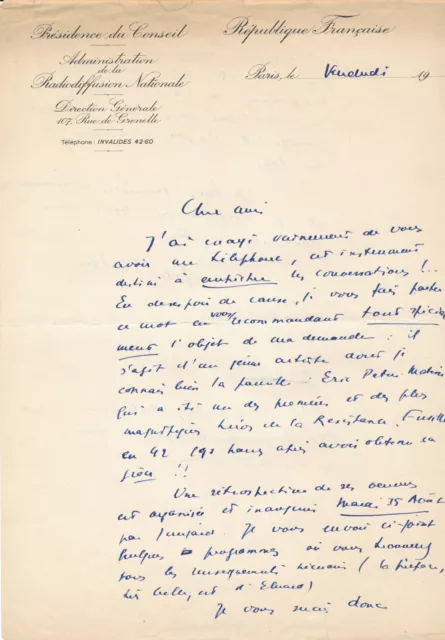 Présidence du Conseil
République Française
Administration
de la
Radiodiffusion Nationale
Paris, le Vendredi 19
Direction Générale
107, Rue de Grenelle
Téléphone : INVALIDES 42-60
Cher ami
J'ai essayé vainement de vous
avoir au téléphone, cet instrument
destiné à empêcher les conversations !..
En desespoir de cause, je vous fais porter
ce mot en vous recommandant tout spécia
lement l'objet de ma demande : il
s'agit d'un jeune artiste dont je
connais bien la famille : Eric Peter
qui a été un des premiers et des plus
magnifiques héros de la Resistance. Fusillé
en 42 après avoir obtenu sa
grâce !!
Une rétrospective de ses oeuvres
est organisée et inaugurée Mardi Août
par . Je vous envoie ci-joint
quelques programmes où vous trouverez
tous les renseignements nécessaires (la préface,
très belle, est d'Eluard)
Je vous serais donc